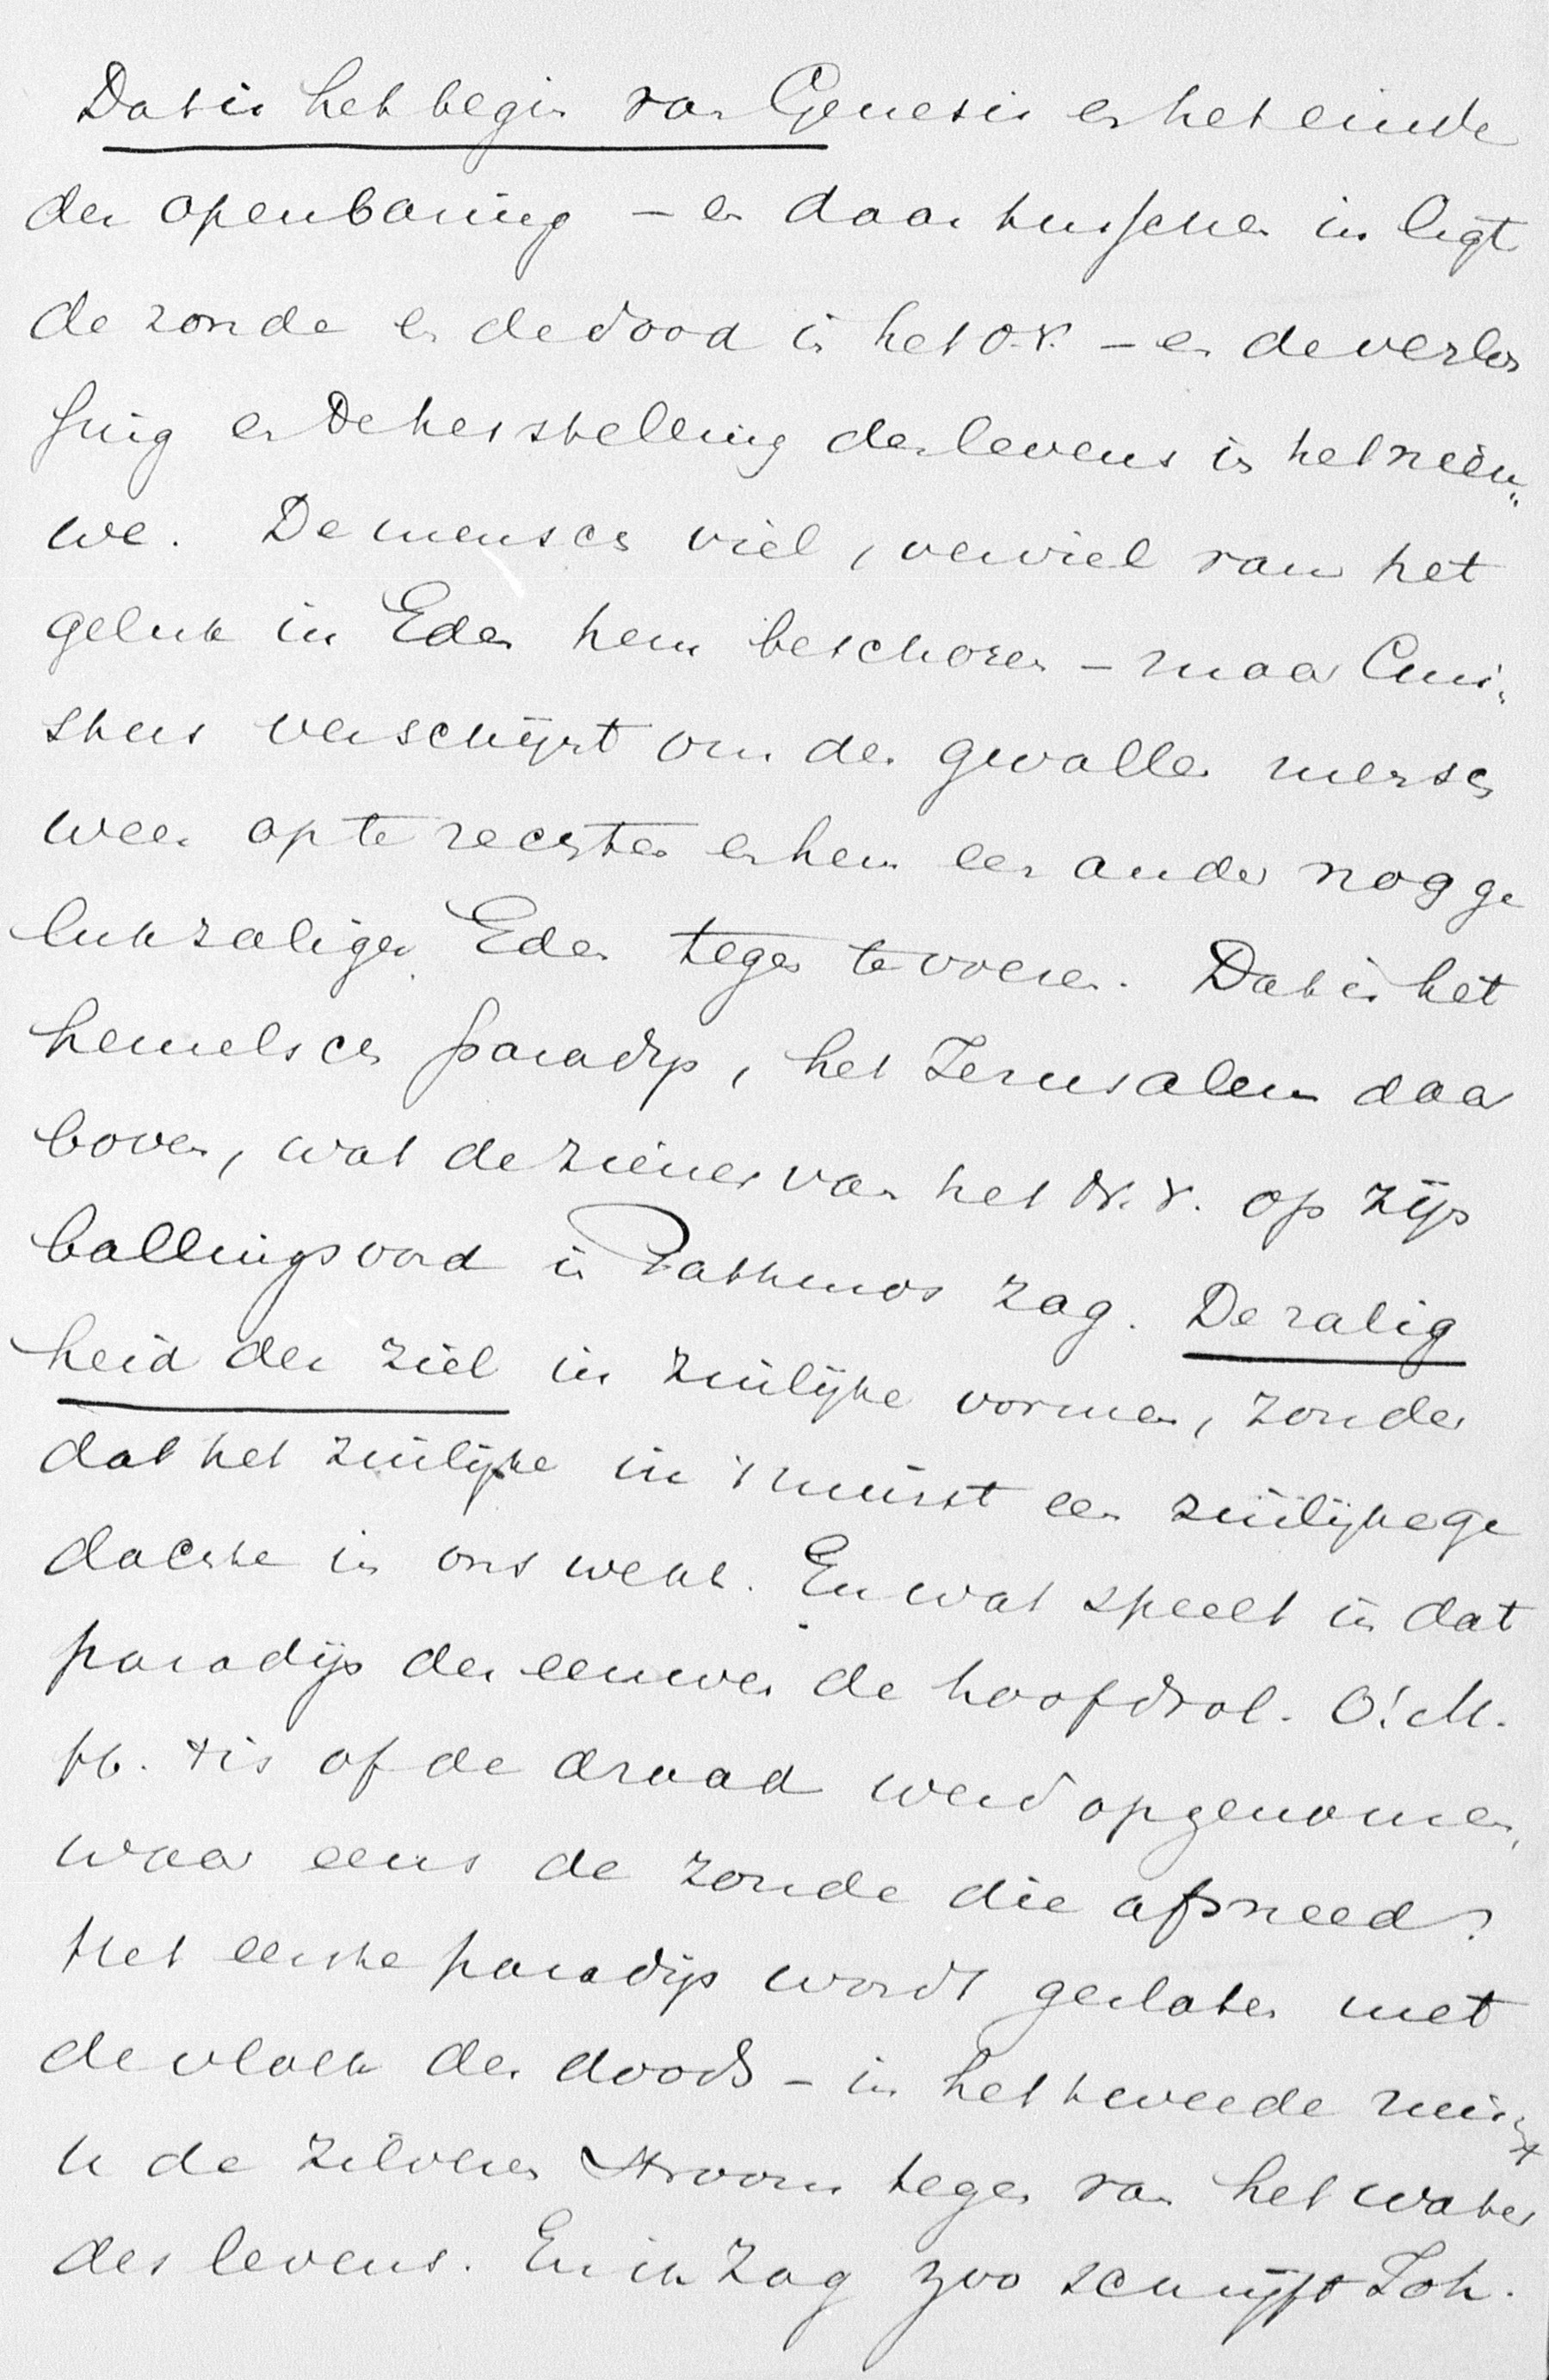 Dat is het begin van Genesis en het einde
der openbaring – en daar tusschen in ligt
de zonde en de dood in het O.V. – en de verlos
sing en de herstelling des levens in het nieu„
we. De mensch viel, verviel van het
geluk in Eden hem beschoren – maar Chri„
stus verschijnt om den gevallen mensch
weer op te rechten en hem een ander nog ge
lukzaliger Eden tegen te voeren. Dat is het
hemelsch paradijs, het Jerusalem daar
boven, wat de ziener van het N.V. op zijn
ballingsoord in Pathmos zag. De zalig
heid der ziel in zinlijke vormen, zonder
dat het zinlijke in 't minst een zinlijke ge
dachte in ons wekt. En wat speelt in dat
paradijs der eeuwen de hoofdrol. O! M.
H. 't is of de draad werd opgenomen,
waar eens de zonde die afsneed?
Het eerste paradijs wordt gesloten met
de vloek des doods – in het tweede ruischt
u de zilveren stroom tegen van het water
des levens. En ik zag zoo schrijft Joh.